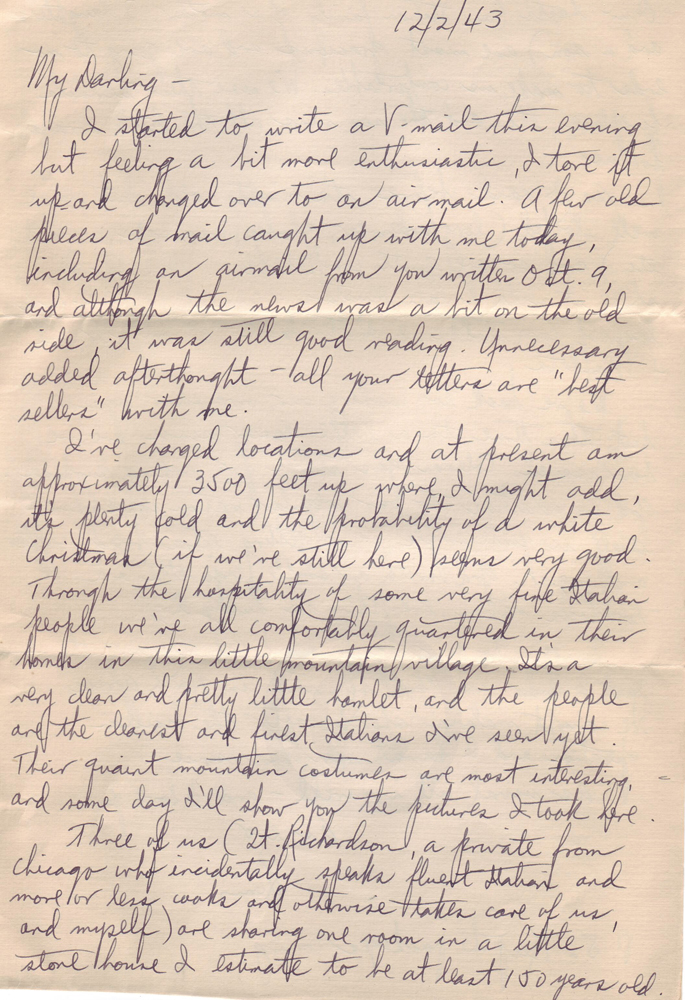 12/2/43
My Darling —
I started to write a V-mail this evening
but feeling a bit more enthusiastic, I tore it
up and changed over to an air mail. A few old
pieces of mail caught up with me today,
including an airmail from you written Oct. 9,
and although the news was a bit on the old
side, it was still good reading. Unnecessary
added afterthought – all your letters are "best
sellers" with me.
I've changed locations and at present am
approximately 3500 feet up where, I might add,
it's plenty cold and the probability of a white
Christmas (if we've still here) seems very good.
Through the hospitality of some very fine Italian
people we've all comfortably quartered in their
homes in this little mountain village. It's a
very clean and pretty little hamlet, and the people
are the cleanest and finest Italians I've seen yet.
Their quaint mountain costumes are most interesting,
and some day I'll show you the pictures I took here.
Three of us (Lt. Richardson, a private from
Chicago who incidentally speaks fluent Italian and
more or less cooks and otherwise takes care of us,
and myself) are sharing one room in a little
stone house I estimate to be at least 150 years old.